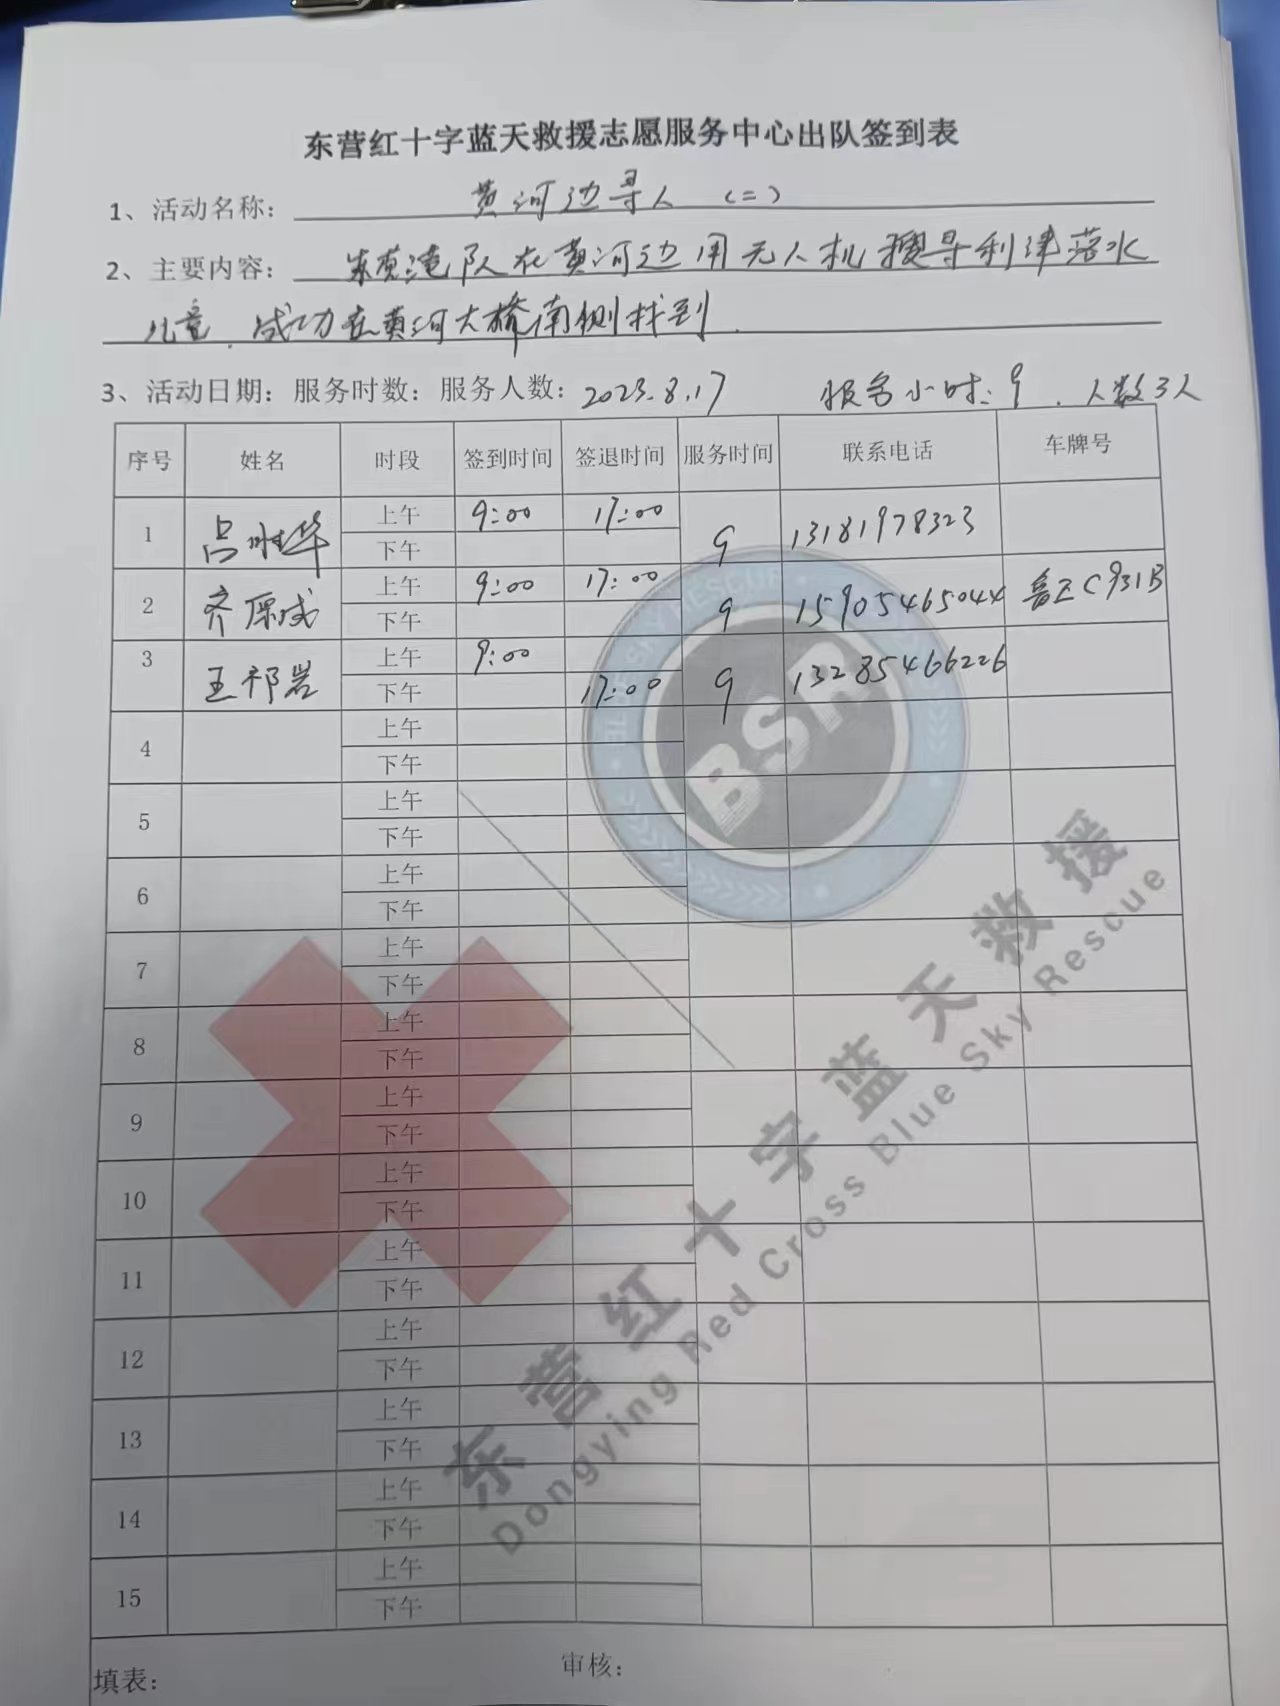 东营红十字蓝天救援志愿服务中心出队签到表
1、活动名称： 黄河边寻人 （二）
2、主要内容： 东营港队在黄河边用无人机搜寻利津落水
儿童．成功在黄河大桥南侧找到．
3、活动日期：服务时数：服务人数： 2023.8.17 服务小时：9．人数3人
序号 姓名 时段 签到时间 签退时间 服务时间 联系电话 车牌号
1 吕胜华 上午 9:00 17:00 9 13181978323
下午
2 齐原成 上午 9:00 17:00 9 15905465044 鲁EC931B
下午
3 王祁岩 上午 9:00 9 13285466226
下午 17:00
4 上午
下午
5 上午
下午
6 上午
下午
7 上午
下午
8 上午
下午
9 上午
下午
10 上午
下午
11 上午
下午
12 上午
下午
13 上午
下午
14 上午
下午
15 上午
下午
填表： 审核：
BLUE SKY RESCUE
BSR
东营红十字蓝天救援
Dongying Red Cross Blue Sky Rescue